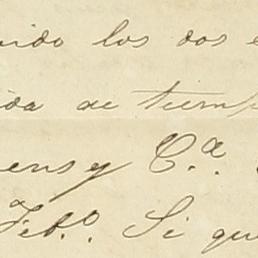 uido los dos e
ida de tiemp
ens y C.ª
Feb.º. Si qu